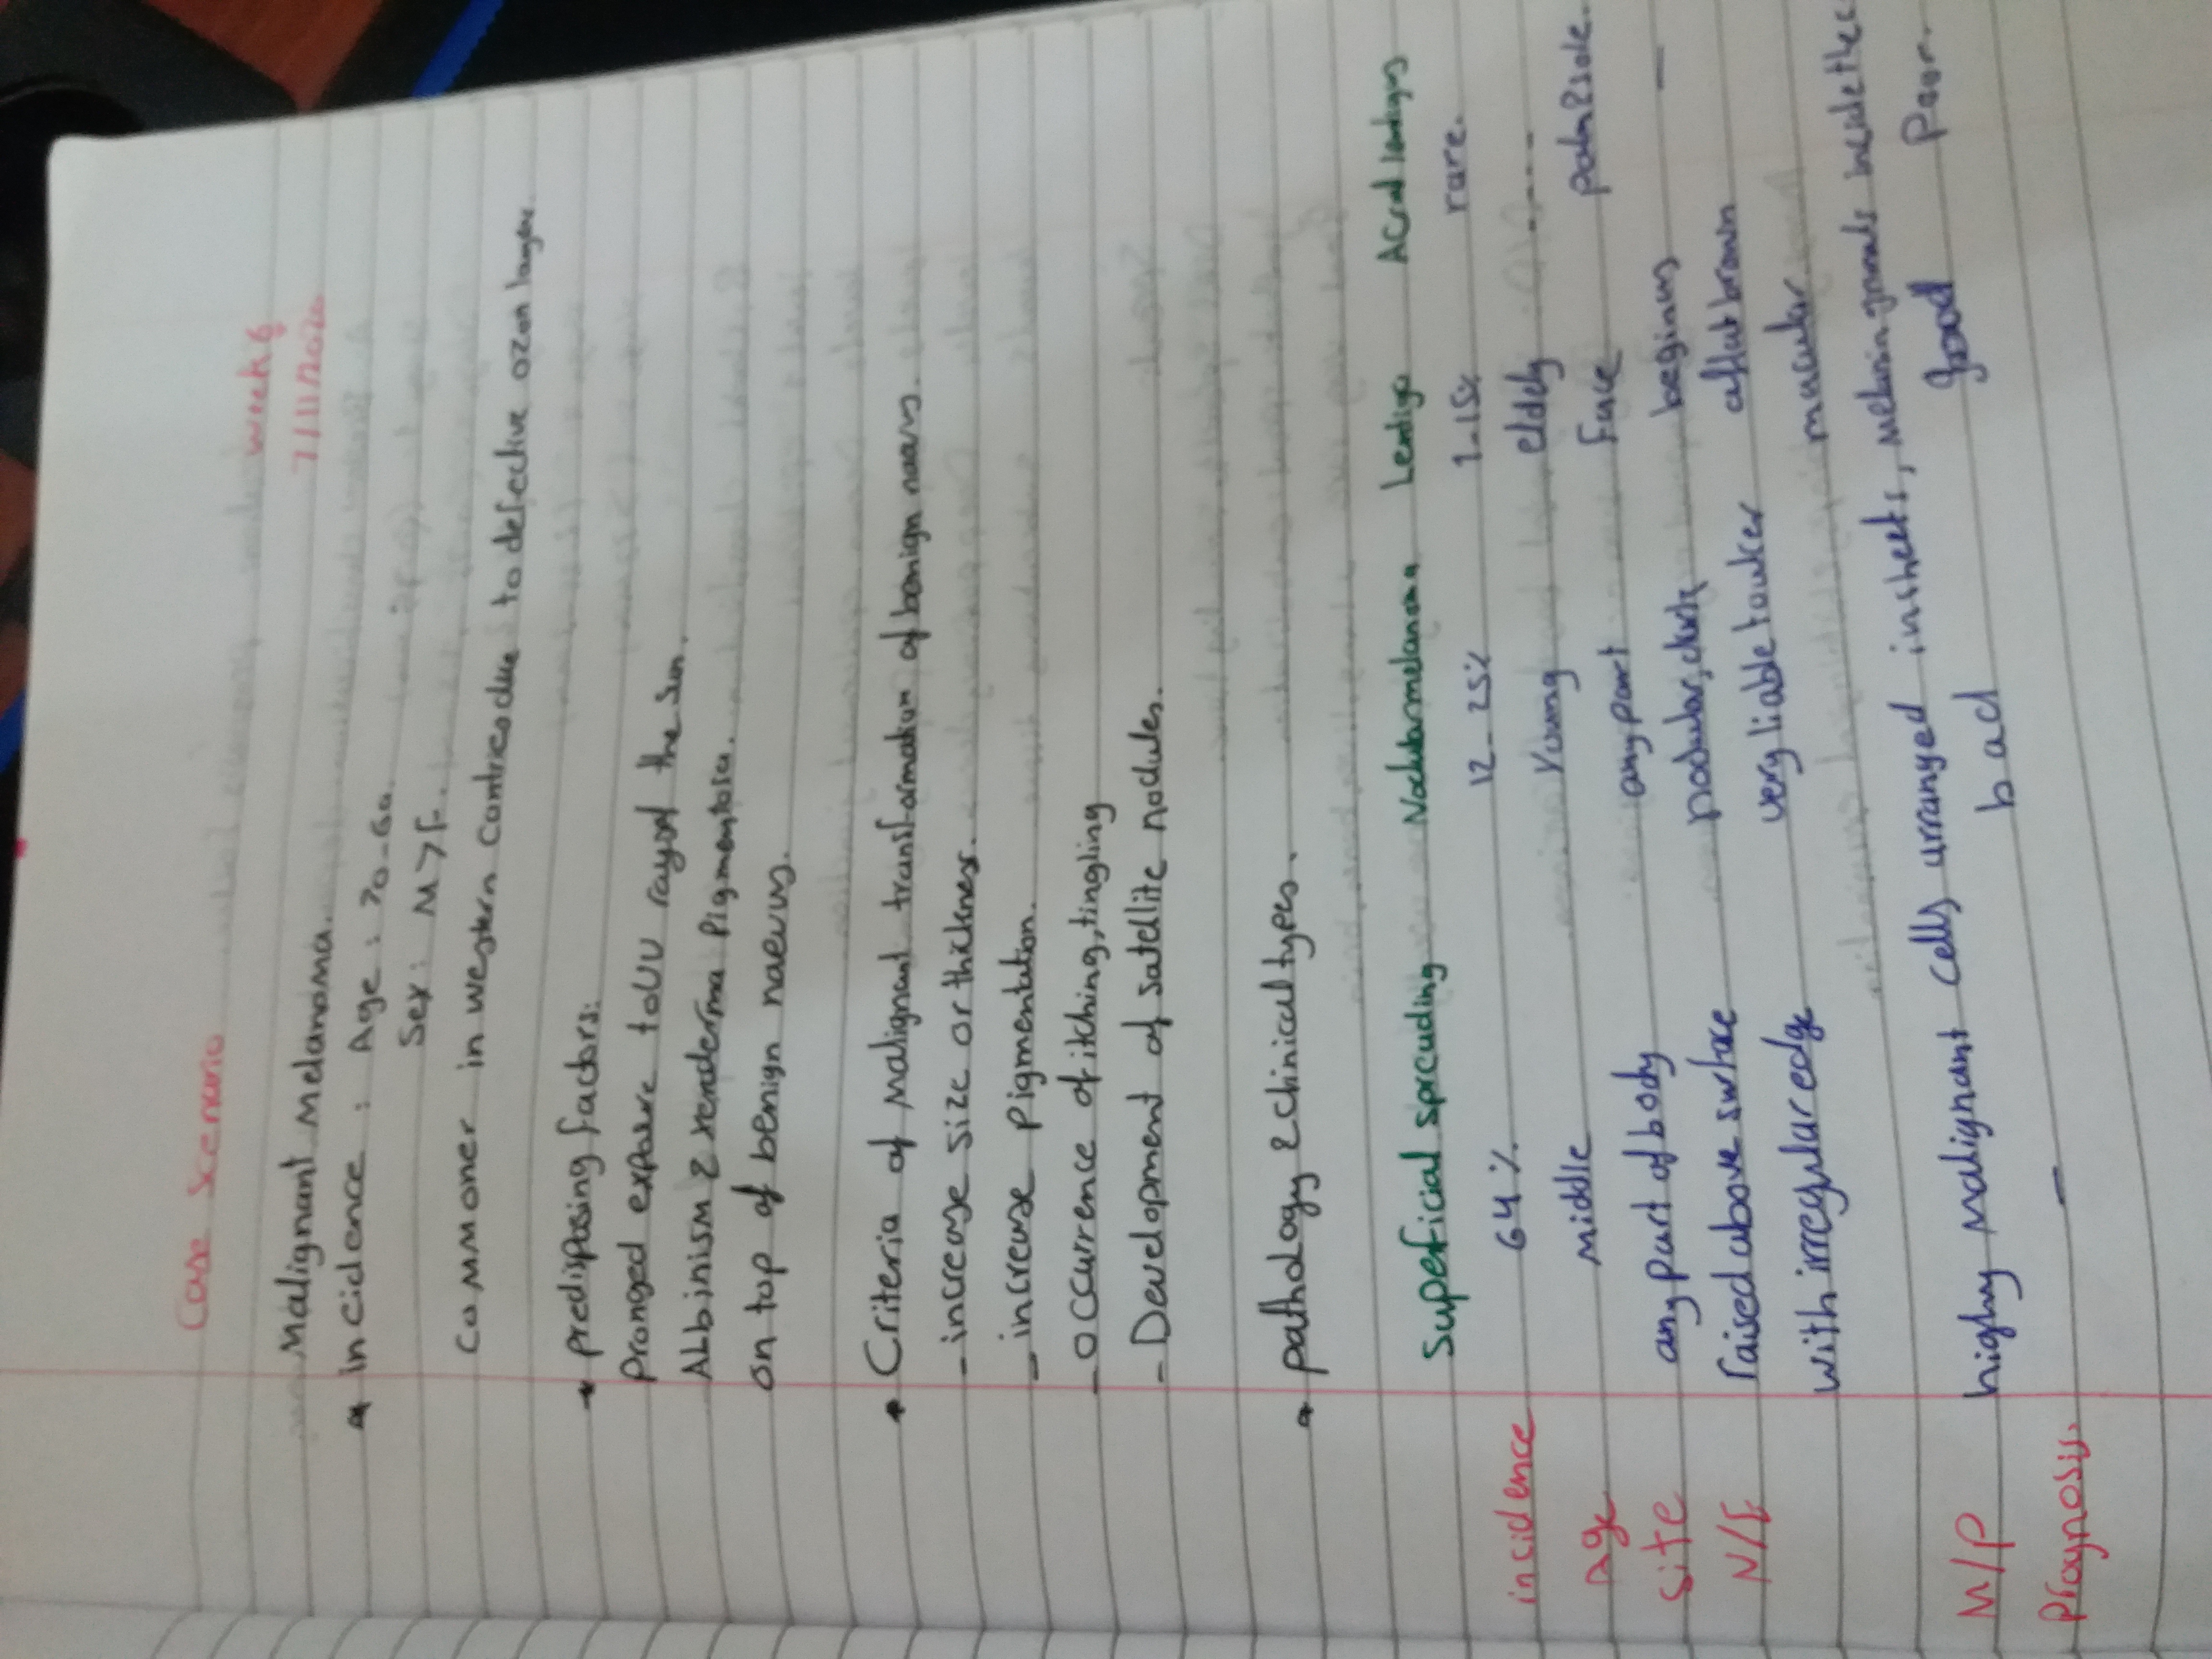 Case Scenario
week 6
Malignant Melanoma.
incidence : Age : 20-60.
Sex : M>F.
Commoner in western contries due to defective ozon layer
predisposing factors:
pronged expouse to UV rays of the sun.
Albinism & xeroderma pigmentosa.
on top of benign naevus.
Criteria of malignant transformation of benign naevus.
- increase size or thickness.
- increase pigmentation.
- occurrence of itching, tingling
- Development of satellite nodules.
pathology & clinical types.
Superficial spreading Nodular melanoma Lentigo Acral lentigos
incidence 64% 12-25% 7-15% rare.
Age Middle Young eldely ----
Site any part of body any part face palm & sole.
N/E raised above surface nodular, dark beginus —
very liable to ulcer a flat brown
with irregular edge macular
M/P highly malignant cells arranged in sheets, melanin granuls
Prognosis. — bad good Poor.